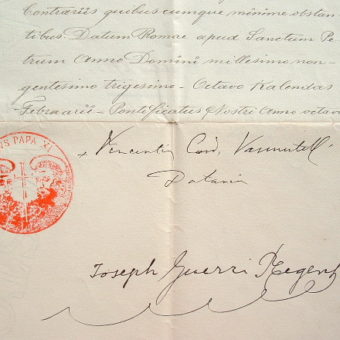 Contrariis quibuscumque minime obstan
tibus. Datum Romae apud Sanctum Pe
trum Anno Domini millesimo non
gentesimo trigesimo - Octavo Kalendas
Februarii - Pontificatus Nostri Anno octavo
PAPA XI
Vincentius Card. Vannutelli
Datarius
Joseph Guerri Regens